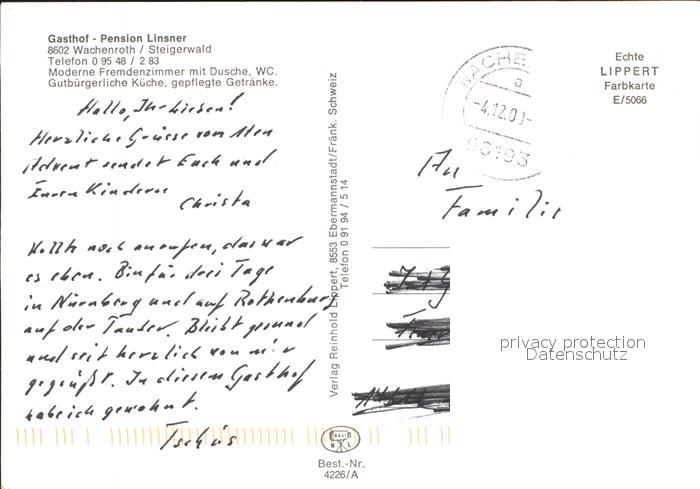 Gasthof - Pension Linsner
8602 Wachenroth / Steigerwald
Telefon 0 95 48 / 2 83
Moderne Fremdenzimmer mit Dusche, WC.
Gutbürgerliche Küche, gepflegte Getränke.
Hallo, Ihr Lieben!
Herzliche Grüsse vom 1ten
Advent sendet Euch und
Euren Kindern
Christa
Wollte noch anrufen, das war
es eben. Bin für drei Tage
in Nürnberg und auf Rothenburg
auf der Tauber. Bleibt gesund
und seit herzlich von mir
gegrüßt. In diesem Gasthof
habe ich gewohnt.
Tschüs
Verlag Reinhold Lippert, 8553 Ebermannstadt/Fränk. Schweiz
Telefon 0 91 94 / 5 14
WACHE
a
-4.12.00-
96193
Echte
LIPPERT
Farbkarte
E/5066
An
Familie
privacy protection
Datenschutz
Best.-Nr.
4226/A